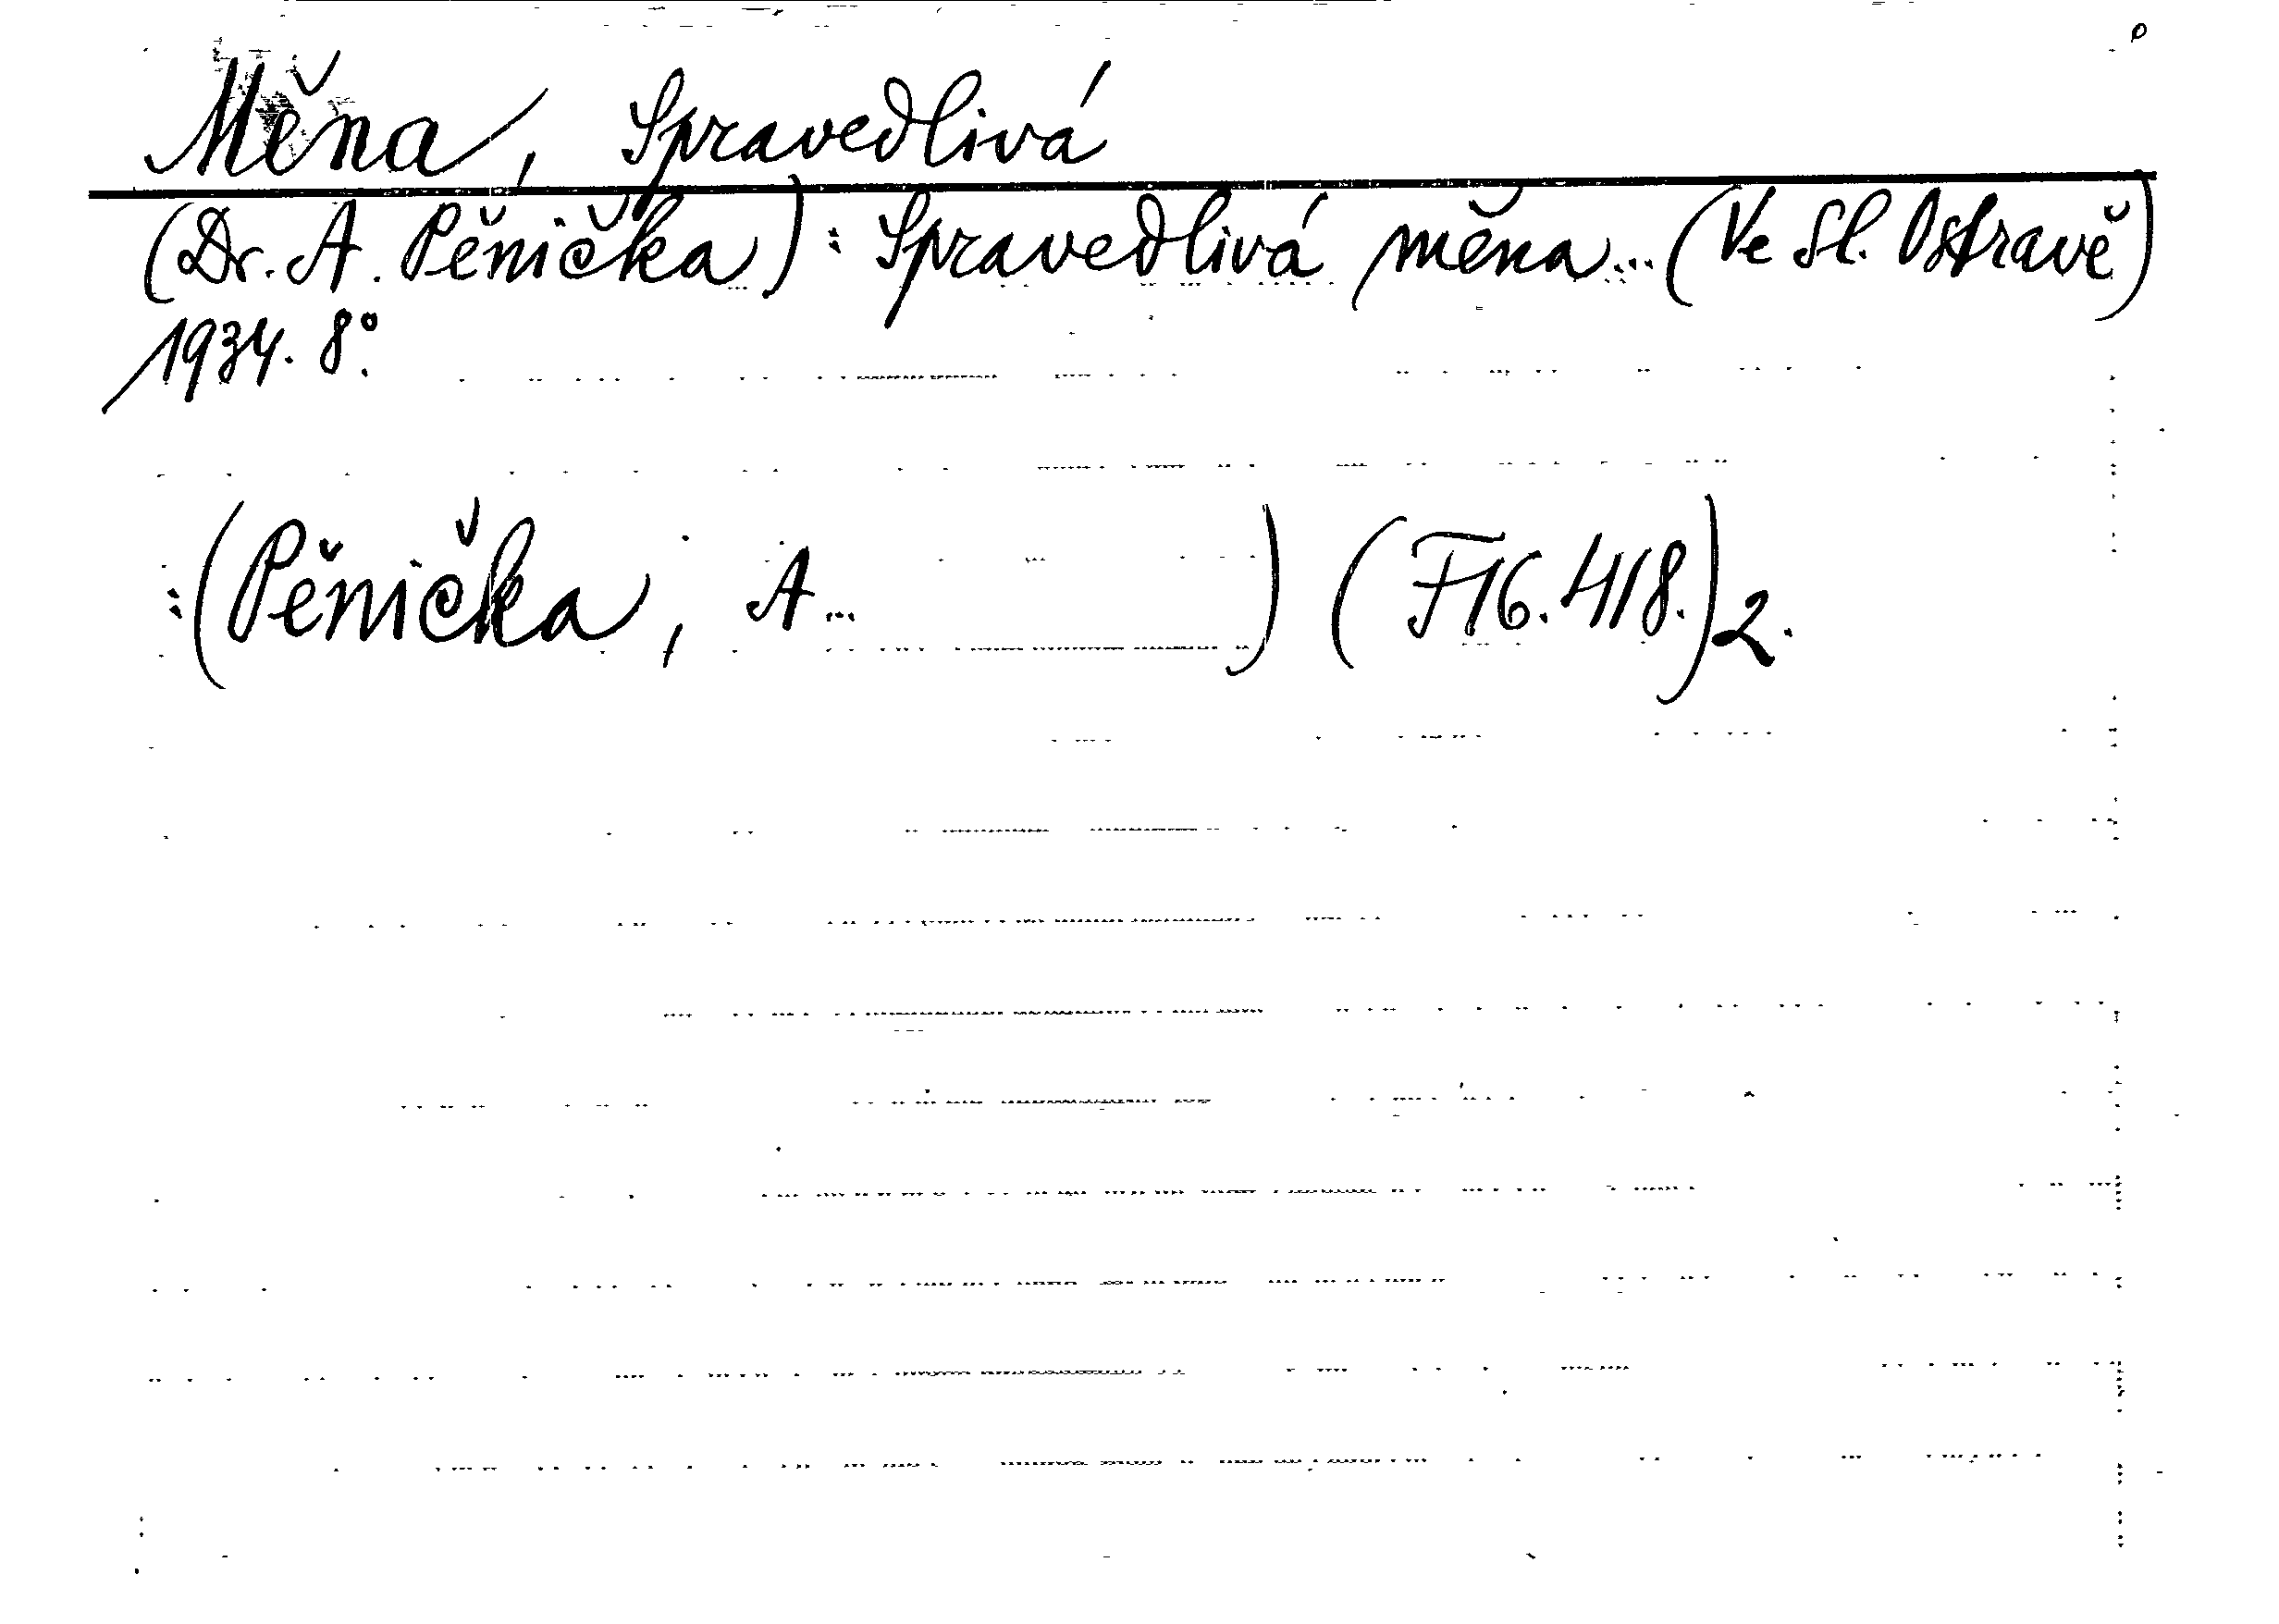 Měna, Spravedlivá
(Dr. A. Pěnička): Spravedlivá měna... (Ve Sl. Ostravě)
1934. 8°.
:(Pěnička, A... ) (F16.418.)2.